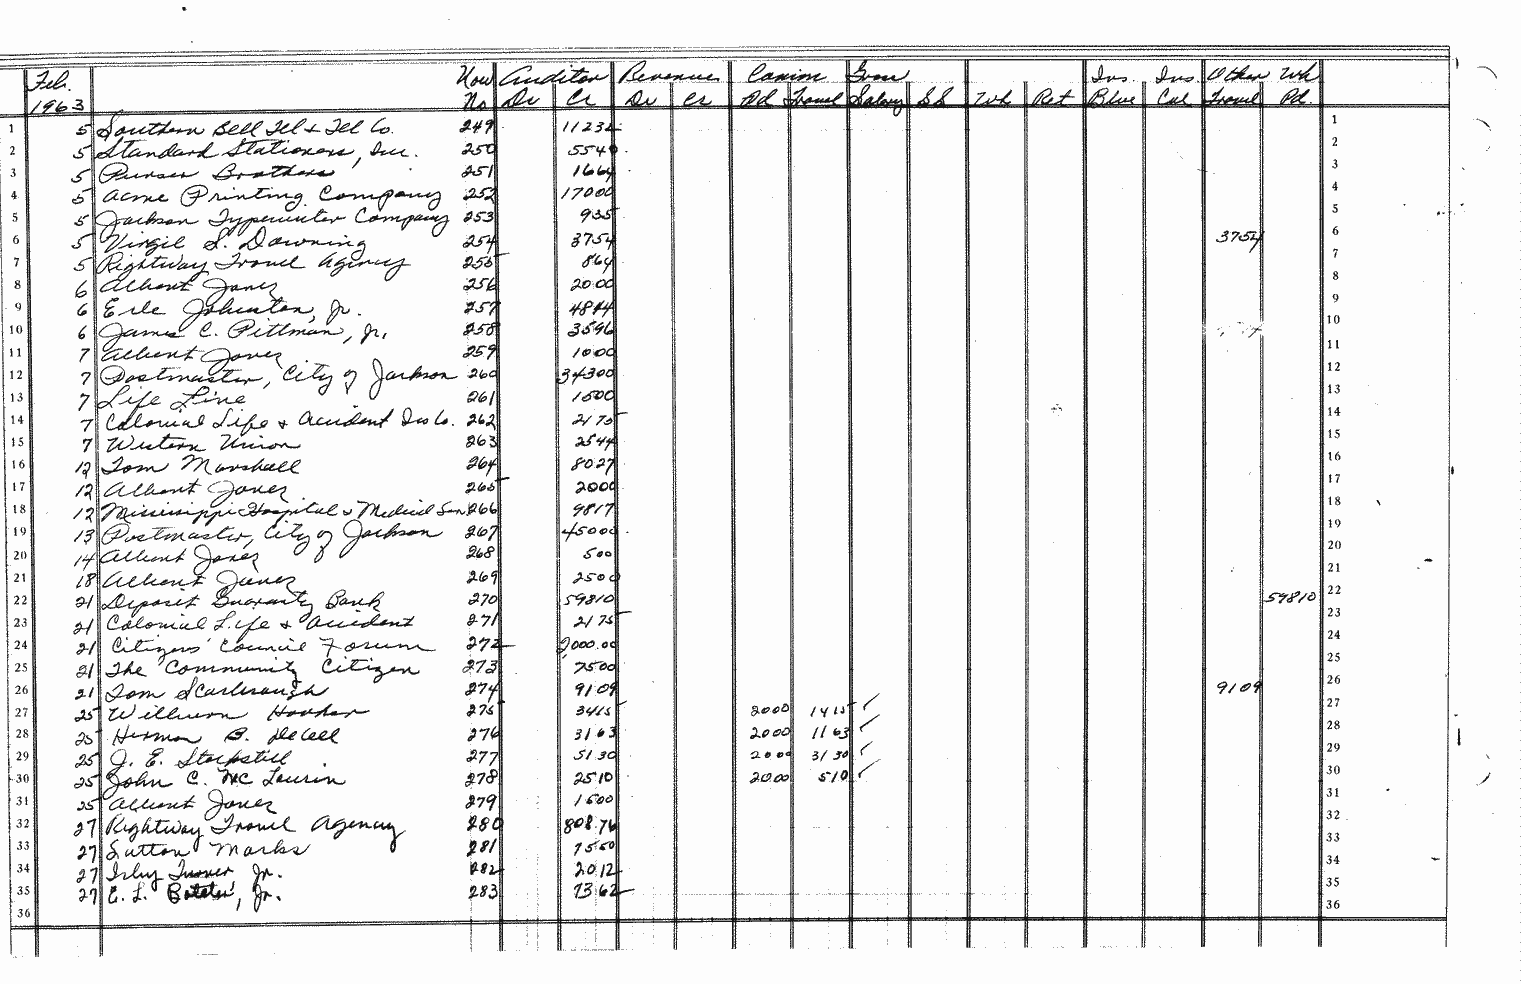 Feb. Vou Auditor Revenues Comm Gross Ins Ins Other Wh
1963 No Dr Cr Dr Cr Pd Travel Salary SS Wh Ret Blue Col Travel Pd.
1 5 Southern Bell Tel & Tel Co. 249 11232 1
2 5 Standard Stationers, Inc. 250 5540 2
3 5 Purser Brothers 251 1664 3
4 5 Acme Printing Company 252 17000 4
5 5 Jackson Typewriter Company 253 935 5
6 5 Virgil S. Downing 254 3754 3754 6
7 5 Rightway Travel Agency 255 864 7
8 6 Albert Jones 256 2000 8
9 6 Erle Johnston, Jr. 257 4844 9
10 6 James C. Pittman, Jr. 258 3596 10
11 7 Albert Jones 259 1000 11
12 7 Postmaster, City of Jackson 260 34300 12
13 7 Life Line 261 1500 13
14 7 Colonial Life & Accident Ins Co. 262 2175 14
15 7 Western Union 263 2544 15
16 12 Tom Marshall 264 8027 16
17 12 Albert Jones 265 2000 17
18 12 Mississippi Hospital & Medical Ser 266 9817 18
19 13 Postmaster, City of Jackson 267 45000 19
20 14 Albert Jones 268 500 20
21 18 Albert Jones 269 2500 21
22 21 Deposit Guaranty Bank 270 59810 59810 22
23 21 Colonial Life & Accident 271 2175 23
24 21 Citizens' Council Forum 272 2,000.00 24
25 21 The Community Citizen 273 7500 25
26 21 Tom Scarbrough 274 9109 9109 26
27 25 Wilburn Hooker 275 3415 2000 1415 ✓ 27
28 25 Herman B. DeCell 276 3163 2000 1163 ✓ 28
29 25 J. E. Stockstill 277 5130 2000 3130 ✓ 29
30 25 John C. McLaurin 278 2510 2000 510 ✓ 30
31 25 Albert Jones 279 1500 31
32 27 Rightway Travel Agency 280 808.76 32
33 27 Sutton Marks 281 7550 33
34 27 Jr. 282 2012 34
35 27 E. L. Jr. 283 7362 35
36 36